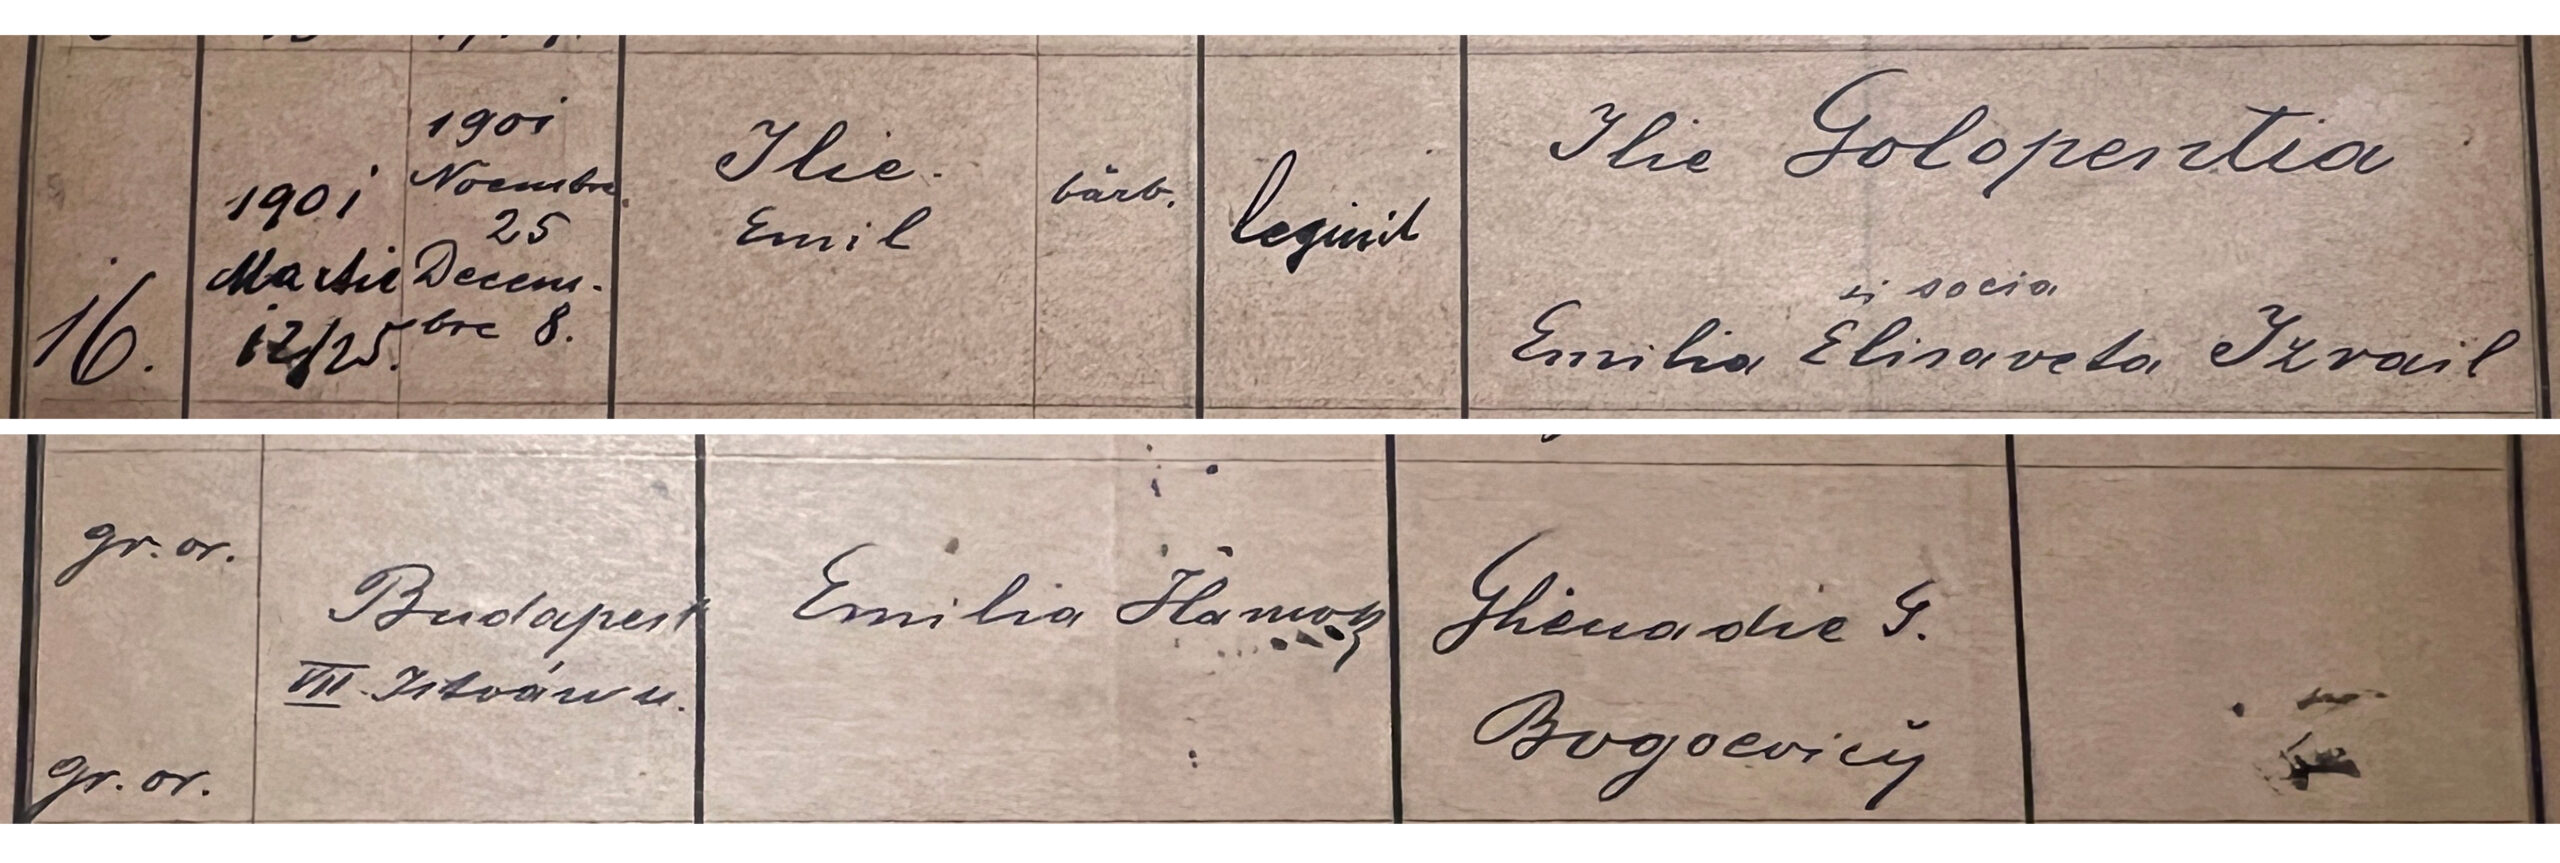 16.
1901
Martie
12/25.
1901
Noembre
25
Decem-
bre 8.
Ilie.
Emil
bărb.
legiuit
Ilie Golopentia
si socia
Emilia Elisaveta Izrail
gr. or.
gr. or.
Budapest
VII. István u.
Emilia
Ghenadie G.
Bogoevicĭ